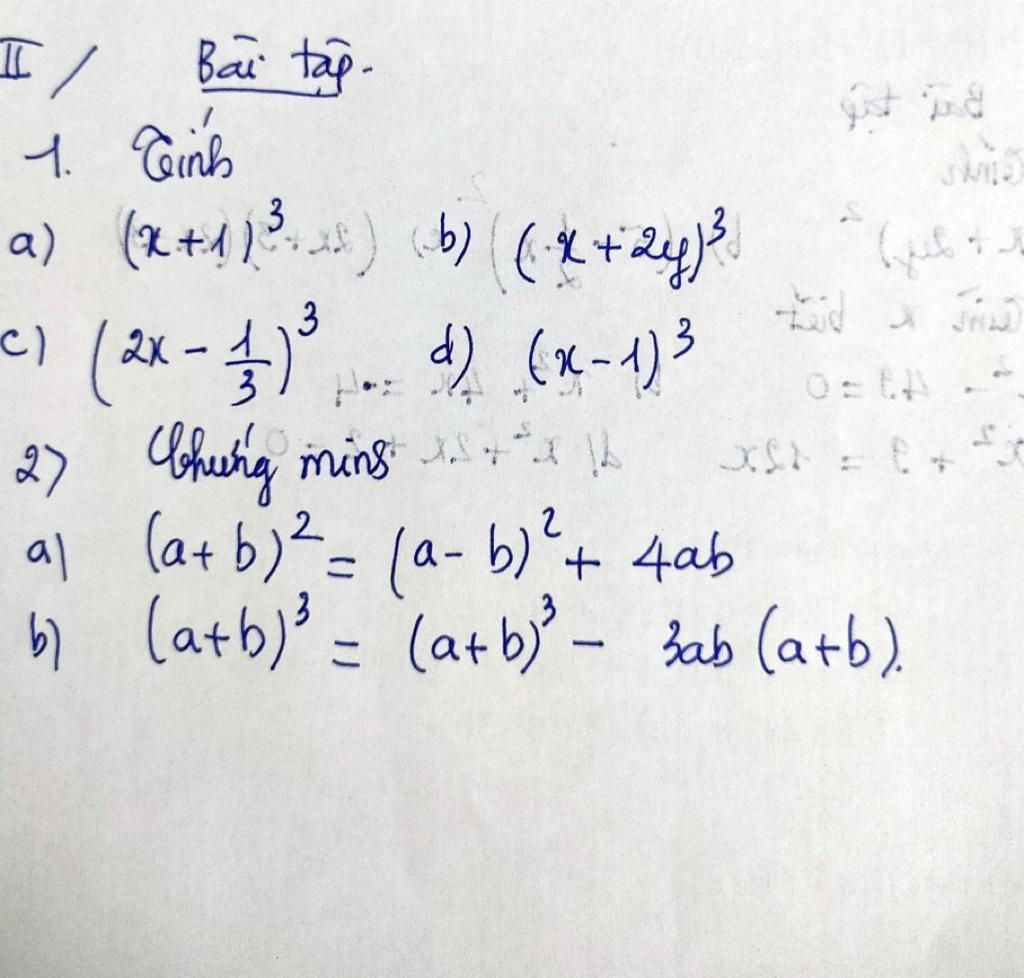 II / Bài tập.
1. Tính
a) (x+1)³ b) (x+2y)³
c) (2x - 1/3)³ d) (x-1)³
2) Chứng minh
a) (a+b)² = (a-b)² + 4ab
b) (a+b)³ = (a+b)³ - 3ab(a+b).